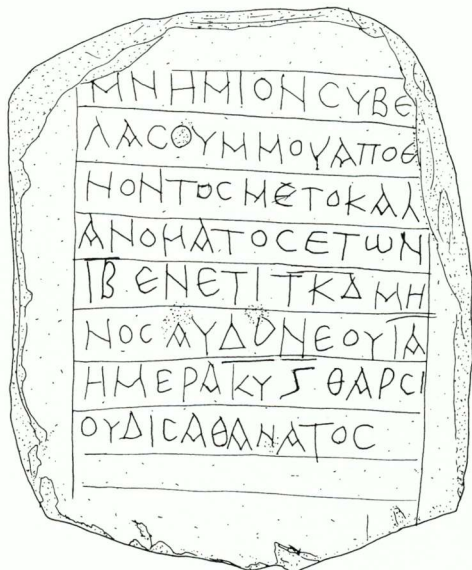 ΜΝΗΜΙΟΝCΥΒΕ
ΛΑCΟΥΜΜΟΥΑΠΟΘ
ΝΟΝΤΟCΜΕΤΟΚΑΛ
ΑΝΟΜΑΤΟCΕΤΩΝ
ΙΒ ΕΝΕΤΙ ΤΚΔ ΜΗ
ΝΟC ΑΥΔΟΝΕΟΥ ΙΑ
ΗΜΕΡΑ ΚΥ Ϛ ΘΑΡCΙ
ΟΥΔΙCΑΘΑΝΑΤΟC